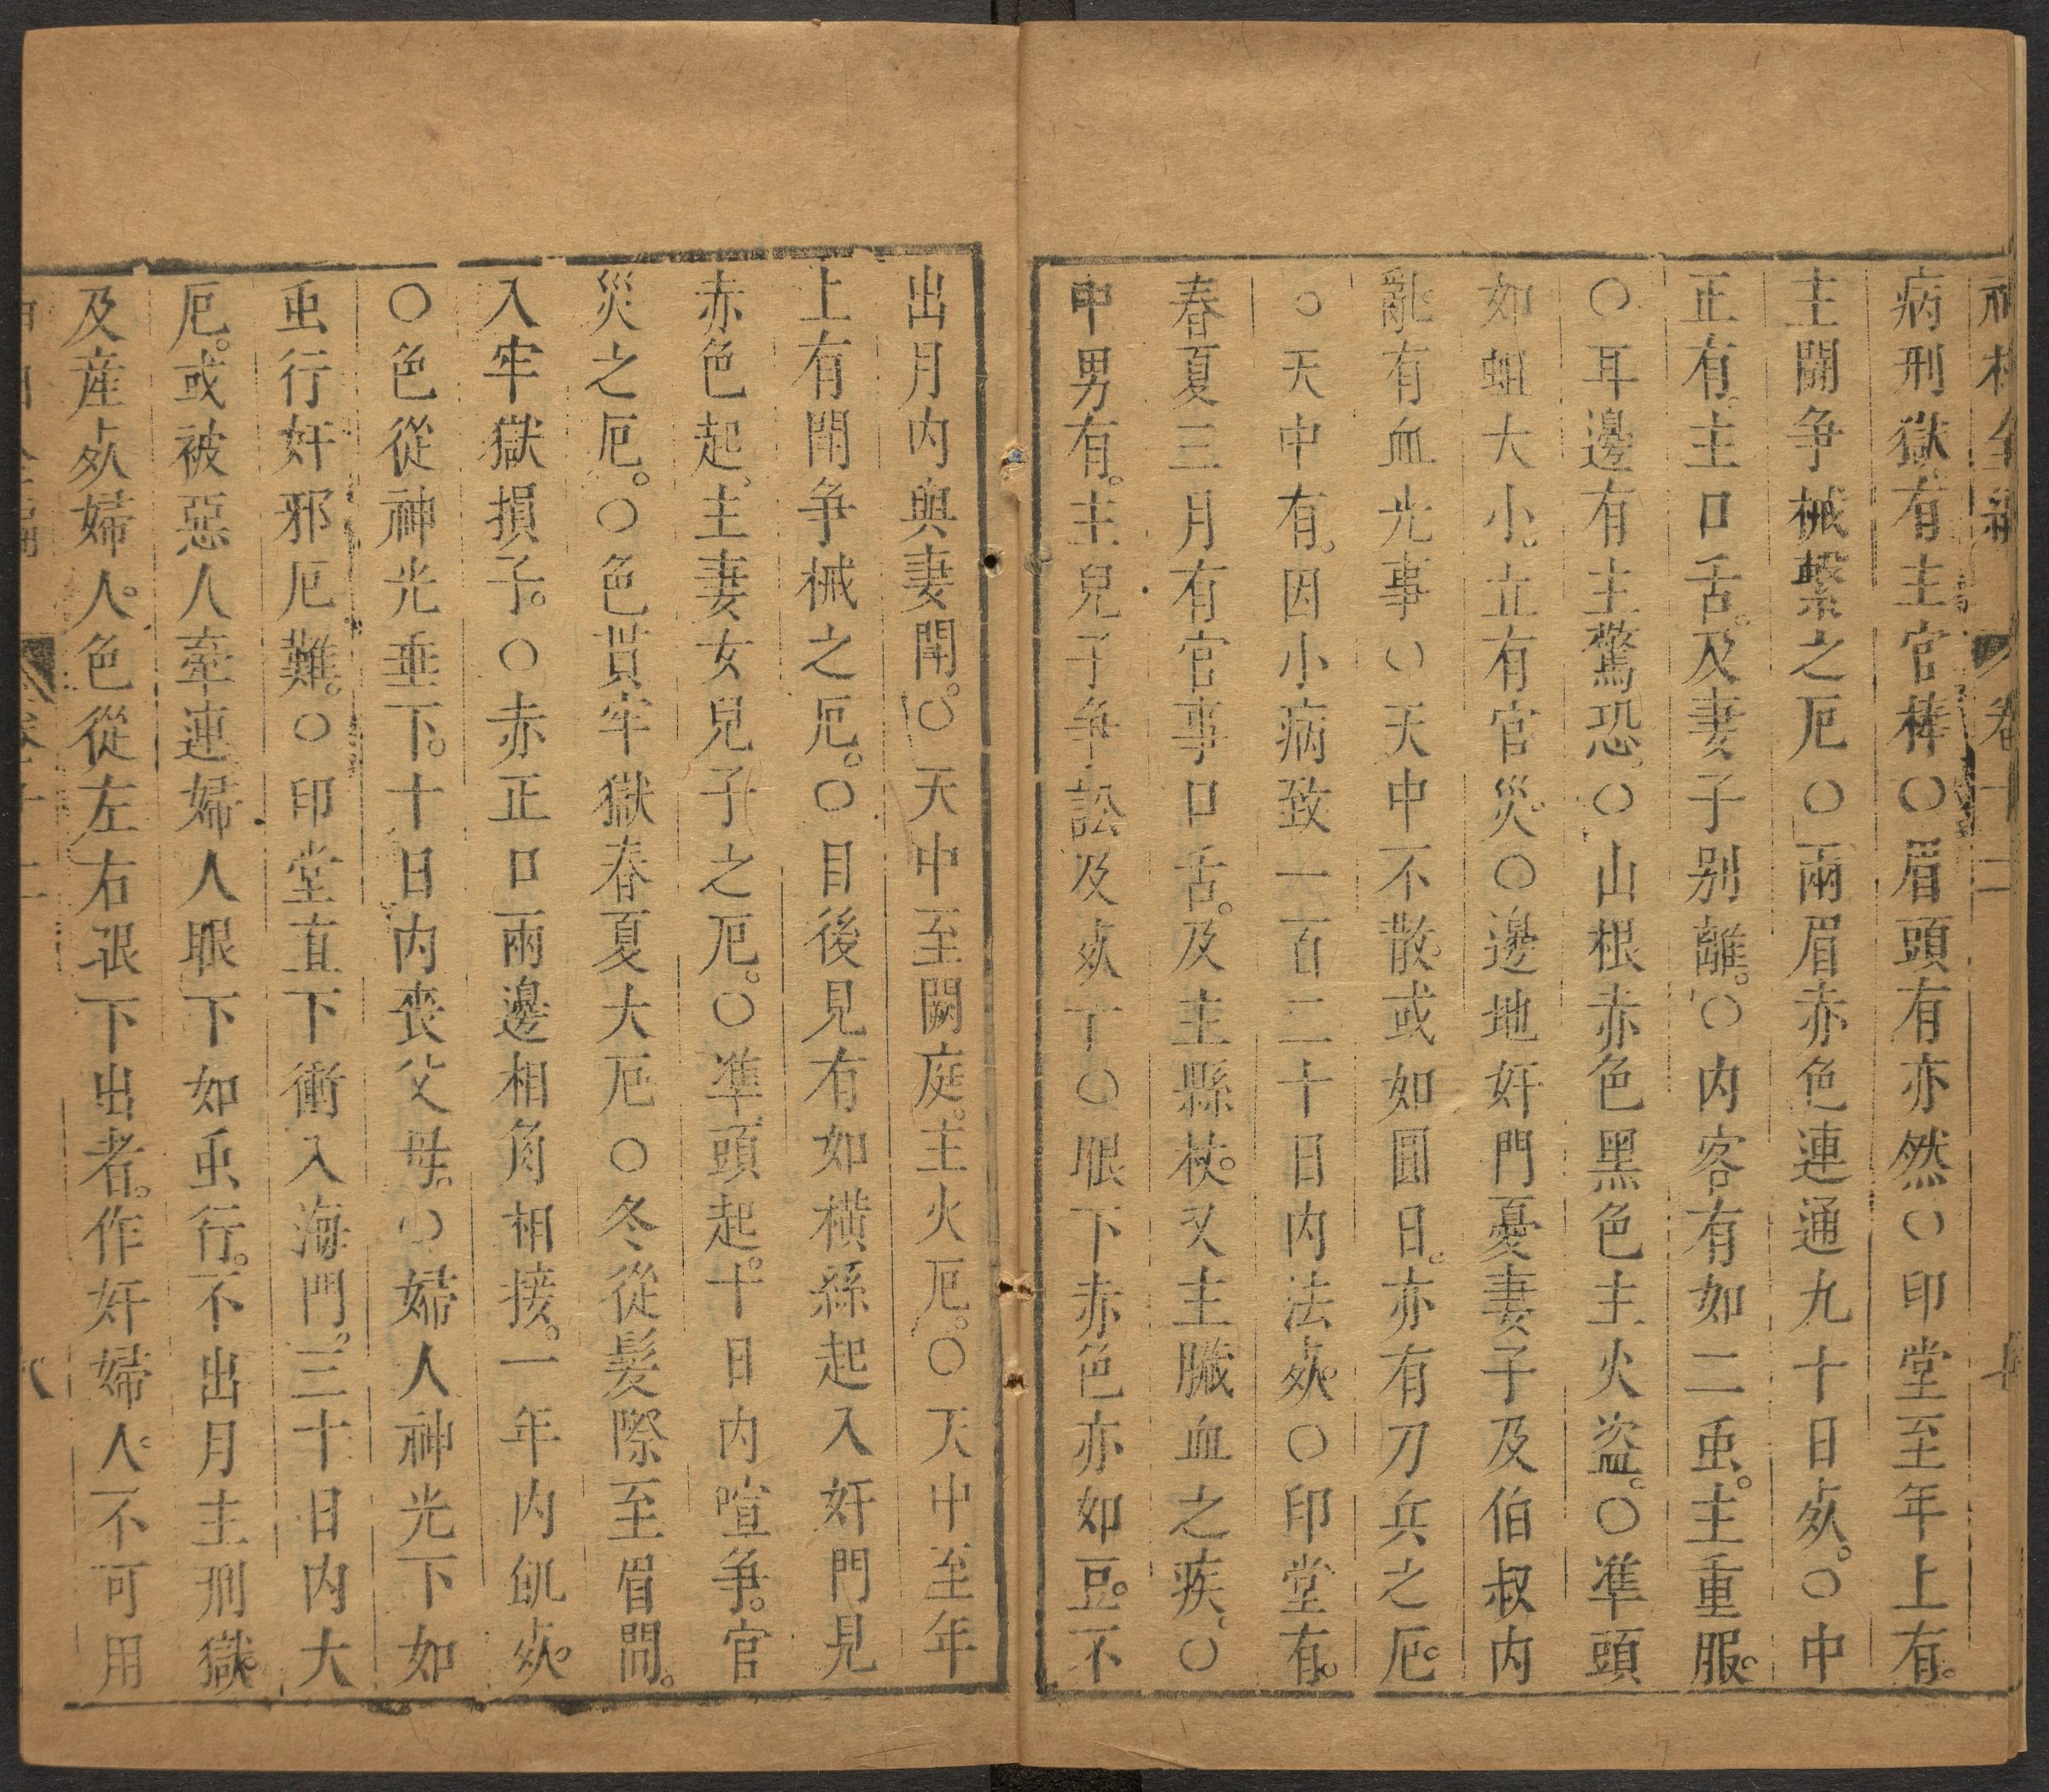 神相全編 卷十二
病刑獄有主官棒〇眉頭有亦然〇印堂至年上有。
主鬪争械繫之厄〇兩眉赤色連通九十日死。〇中
正有主口舌。及妻子别離。〇内客有如二虫。主重服。
〇耳邊有主驚恐〇山根赤色黑色主火盗。〇準頭
如蛆大小。立有官災〇邊地奸門憂妻子及伯叔内
亂有血光事〇天中不散。或如圓日。亦有刀兵之厄。
〇天中有。因小病致一百二十日内法死。〇印堂有。
春夏三月有官事口舌。及主縣杖。又主臟血之疾。〇
中男有。主兒子争訟及死丁〇眼下赤色亦如豆。不
出月内與妻鬧。〇天中至闕庭。主火厄。〇天中至年
上有鬧争械之厄。〇目後見有如横絲起入奸門見
赤色起。主妻女兒子之厄。〇準頭起。十日内喧争。官
災之厄。〇色貫牢獄春夏大厄〇冬從髮際至眉間。
入牢獄損子。〇赤正口兩邊相角相接。一年内飢死。
〇色從神光垂下。十日内喪父母。〇婦人神光下如
虫行奸邪厄難。〇印堂直下衝入海門。三十日内大
厄。或被惡人牽連婦人眼下如虫行。不出月主刑獄。
及産死婦人。色從左右眼下出者。作奸婦人。不可用
八